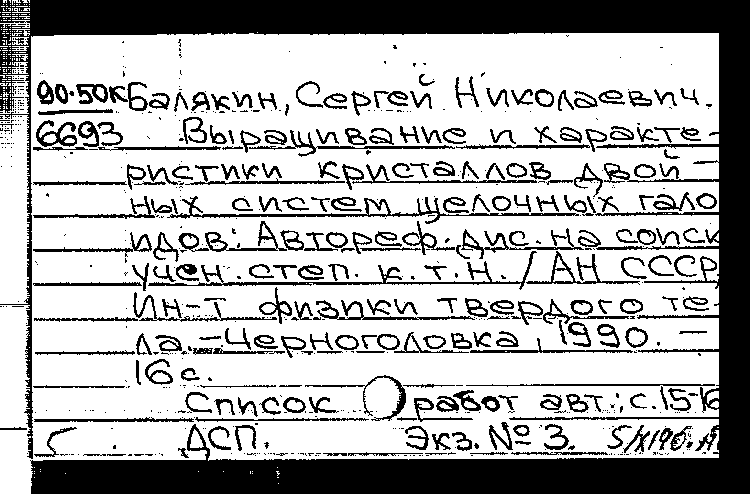 90-50К Балякин, Сергей Николаевич.
6693 Выращивание и характе-
ристики кристаллов двой-
ных систем щелочных гало
идов: Автореф. дис. на соиск
учен. степ. к.т.н. / АН СССР,
Ин-т физики твердого те-
ла. – Черноголовка, 1990. –
16 с.
Список работ авт.: с. 15-16
ДСП. Экз. № 3.